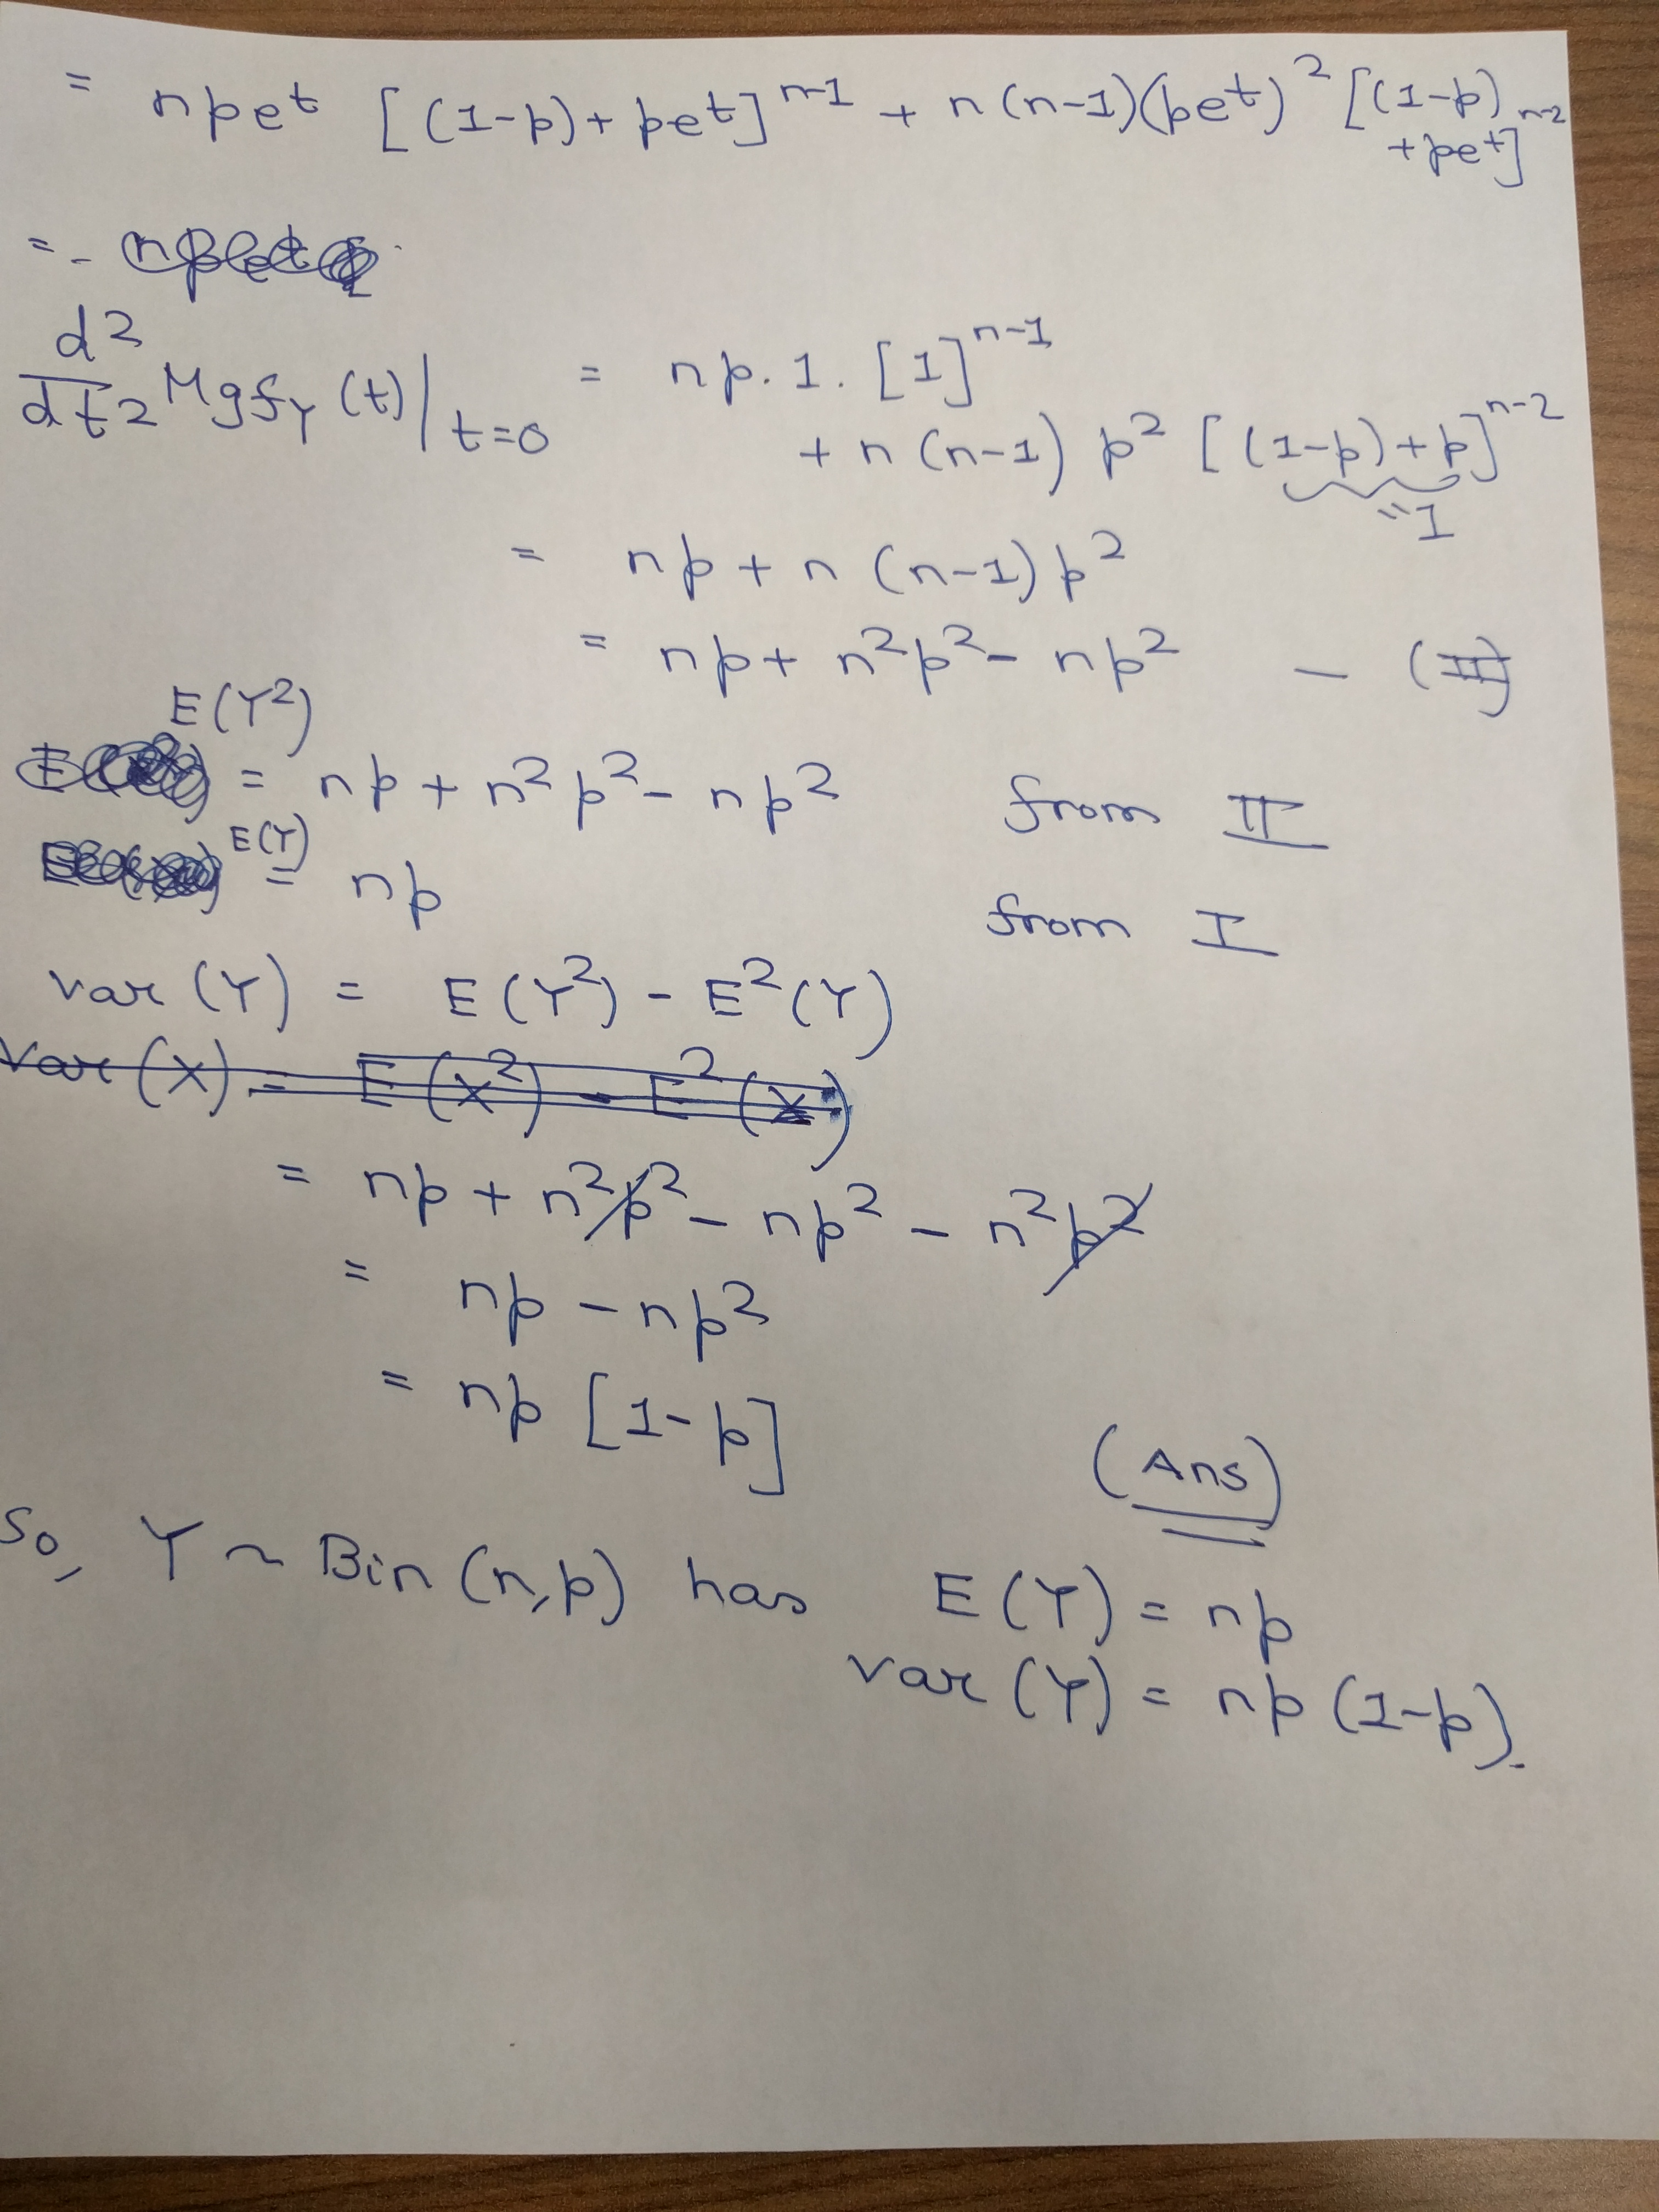 = npe^t [(1-p)+pe^t]^{n-1} + n(n-1)(pe^t)^2 [(1-p)
+pe^t]^{n-2}
= -
d^2/dt^2 Mgf_Y(t)|_{t=0} = np.1.[1]^{n-1}
+ n(n-1) p^2 [(1-p)+p]^{n-2}
=1
= np + n(n-1)p^2
= np + n^2p^2 - np^2 — (II)
E(Y^2)
= np + n^2p^2 - np^2 from II
E(Y)
= np from I
Var(Y) = E(Y^2) - E^2(Y)
Var(X) = E(X^2) - E^2(X)
= np + n^2p^2 - np^2 - n^2p^2
= np - np^2
= np [1-p]
(Ans)
So, Y ~ Bin(n,p) has E(Y) = np
Var(Y) = np(1-p).